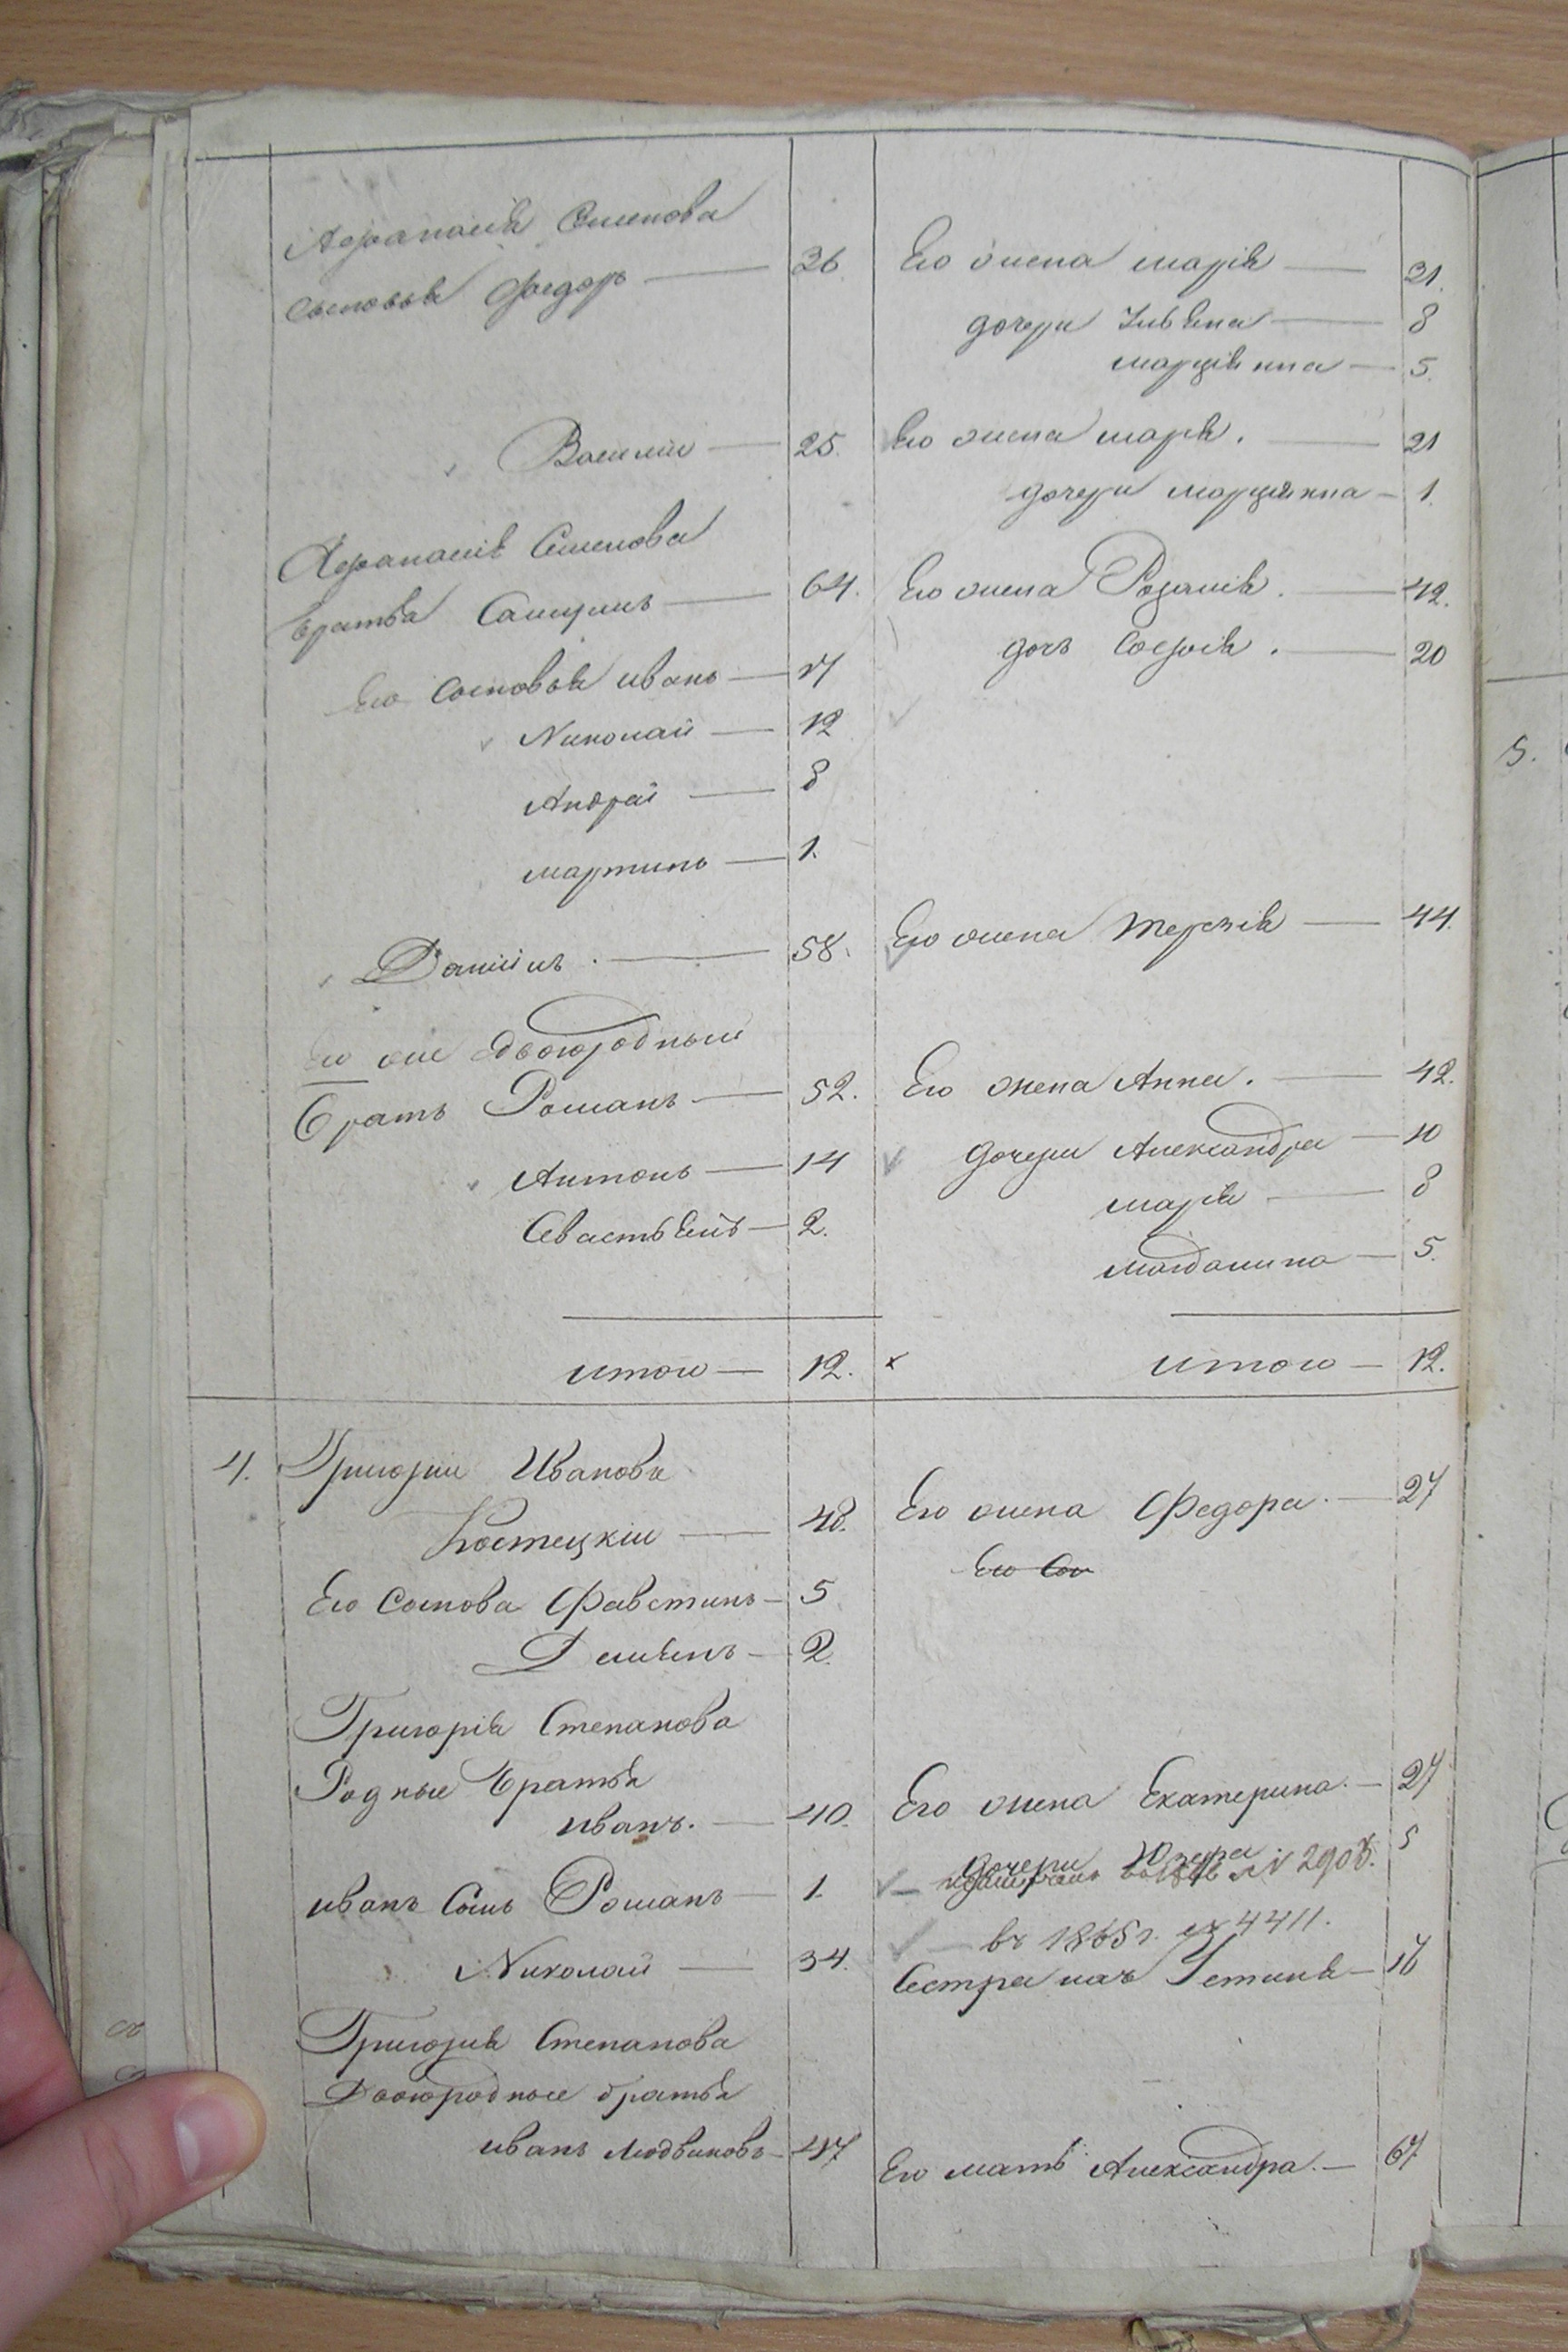 Афанасія Семенова
Сыновья Федоръ — 36.
Его жена Марія — 31.
дочери Ульяна — 8
Марціянна — 5.
Василій — 25.
Его жена Марія. — 21
дочери Марціянна — 1.
Афанасія Семенова
братья Самуилъ — 64.
Его жена Розалія. — 42.
дочь Софія. — 20
Его Сыновья Иванъ — 17
Николай — 12
Андрей — 8
Мартинъ — 1.
Даніилъ. — 58.
Его жена Терезія — 44.
Его же двоюродный
братъ Романъ — 52.
Его жена Анна. — 42.
Антонъ — 14
дочери Александра — 10
Севастьянъ — 2.
Марія — 8
Магдалина — 5.
Итого — 12.
Итого — 12.
4. Григорій Ивановъ
Костецкій — 48.
Его жена Федора. — 27
Его Сы
Его Сынова Фавстинъ — 5
Демьянъ — 2.
Григорія Степанова
Родные братья
Иванъ. — 40.
Его жена Екатерина. — 27
дочери Юзефа 5
№ 2908.
Иванъ Сынъ Романъ — 1.
въ 1865 г. 4411.
Николай — 34.
Сестра ихъ Устинія — 16
Григорія Степанова
Двоюродные братья
Иванъ Людвиковъ — 47
Его мать Александра. — 67
5.